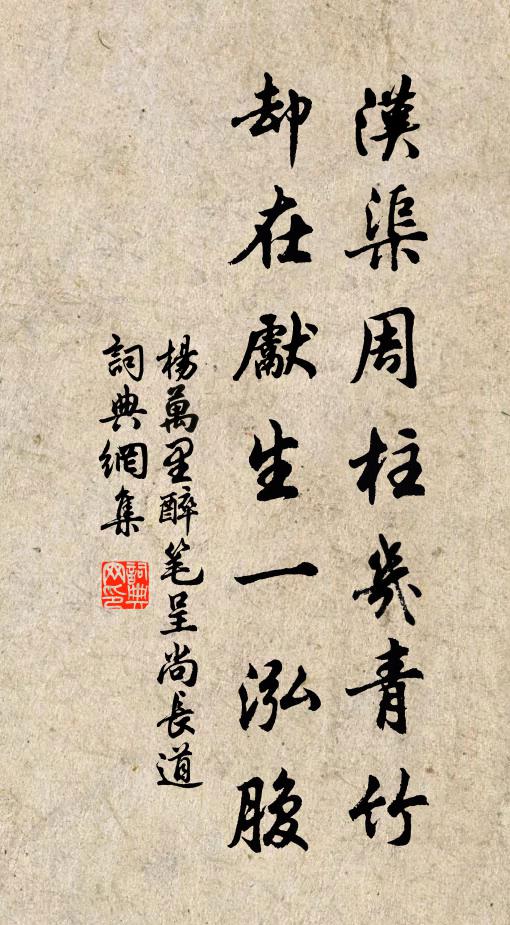 漢渠周柱幾青竹
却在獻生一泓腹
楊萬里醉笔呈尚長道
詞典網集
詞典网印